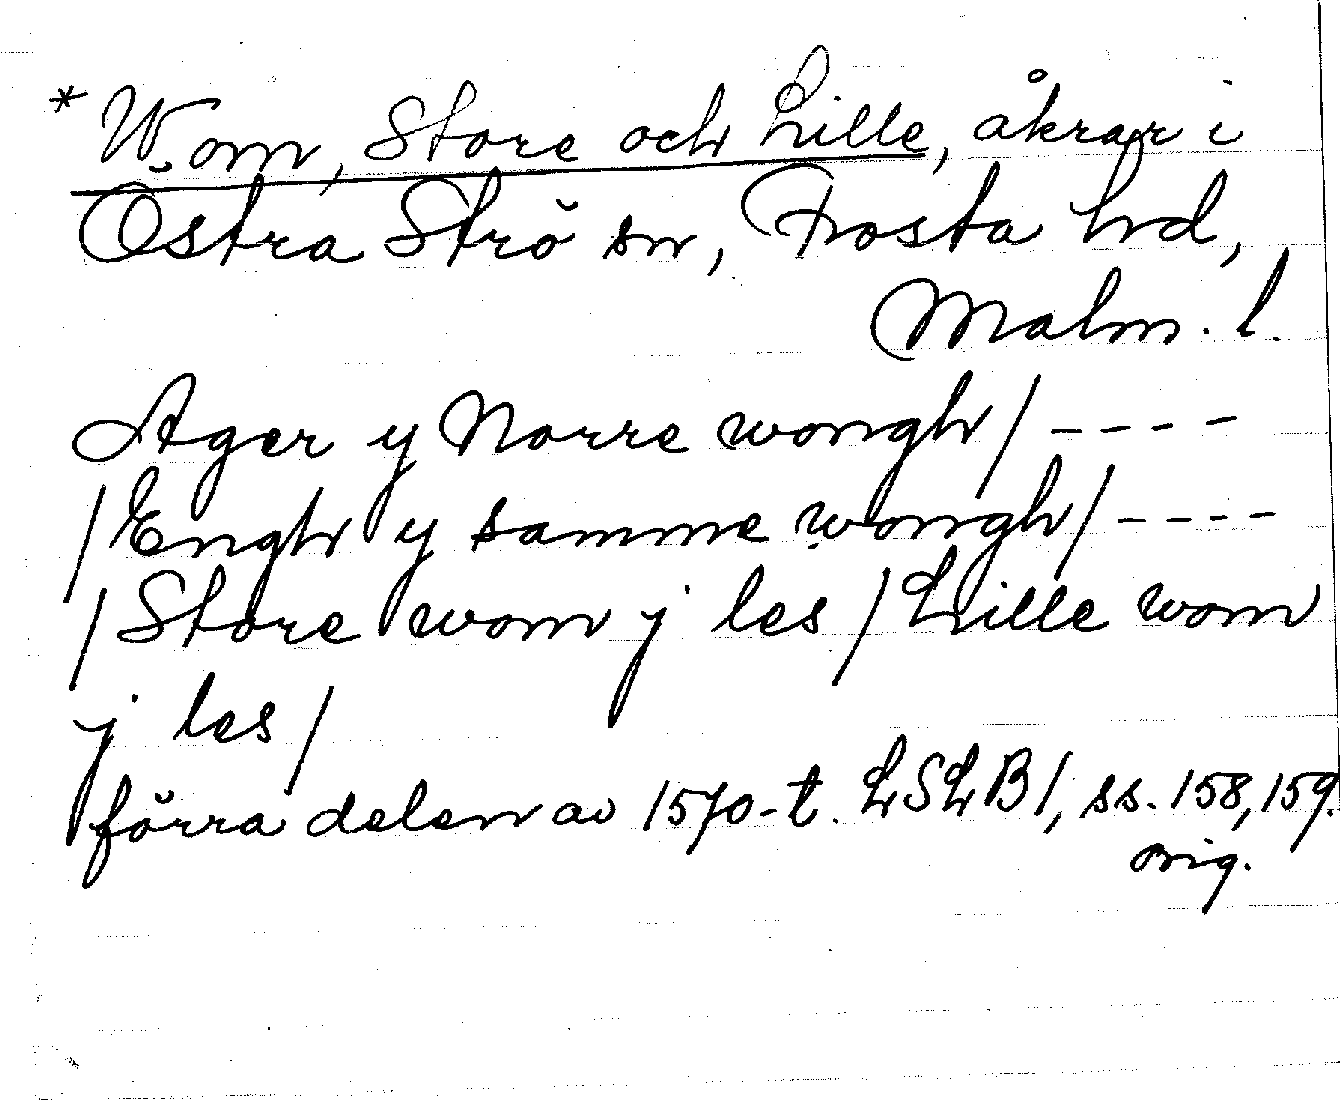 * Wom, Store och Lille, åkrar i
Östra Strö sn, Frosta hd,
Malm. l.
Ager y Norre wongh / - - - -
/ Engh y samme wongh / - - - -
/ Store wom j les / Lille wom
j les /
förra delen av 1570-t. LSLB 1, ss. 158, 159.
orig.